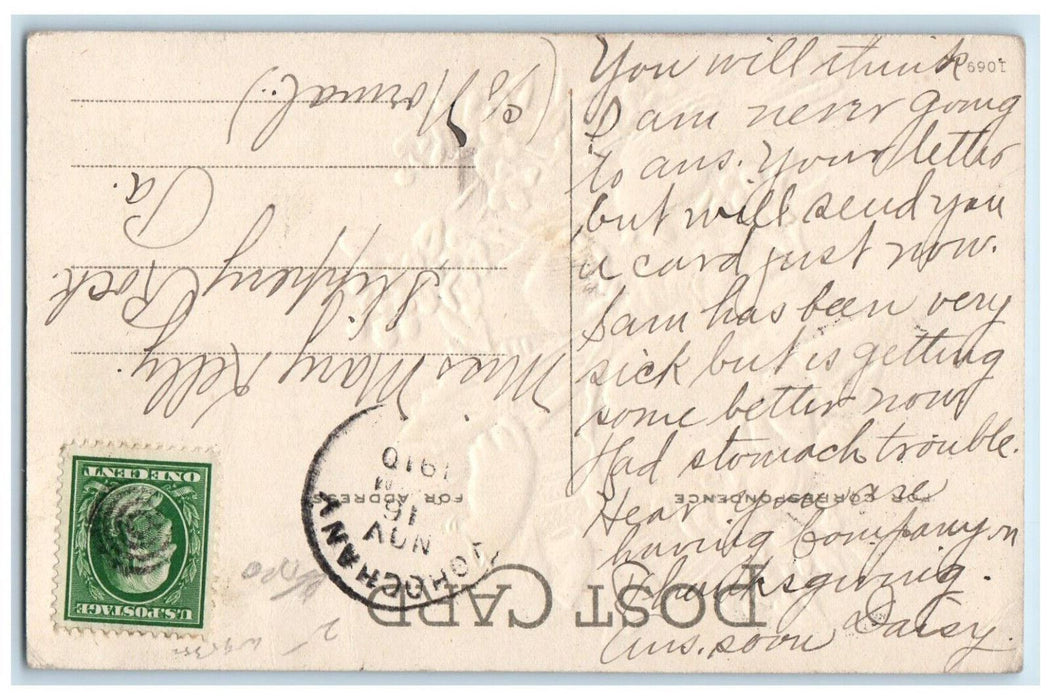 You will think
I am never going
to ans. your letter
but will send you
a card just now.
Sam has been very
sick but is getting
some better now
Had stomach trouble.
Hear you are
having company on
Thanksgiving.
Ans. soon Daisy.
10699
POST CARD
FOR CORRESPONDENCE
FOR ADDRESS
NOV
16
1910
Miss Mary Kelly.
Slippery Rock
Pa.
(℅ Normal.)
U.S. POSTAGE
ONE CENT